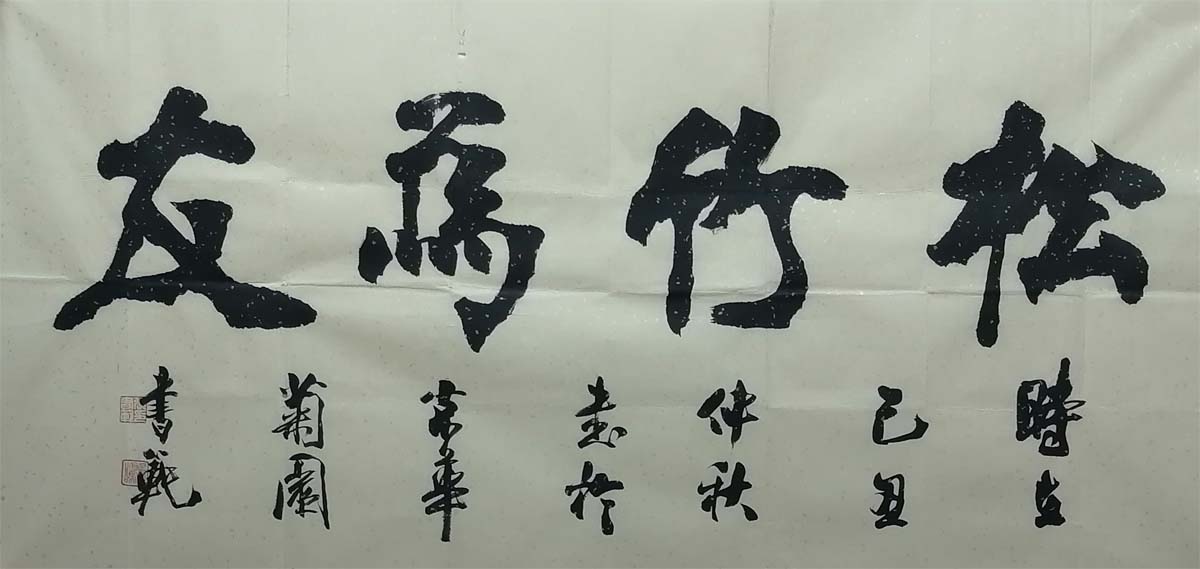 松竹為友
時在
己丑
仲秋
書於
京華
菊園
書範